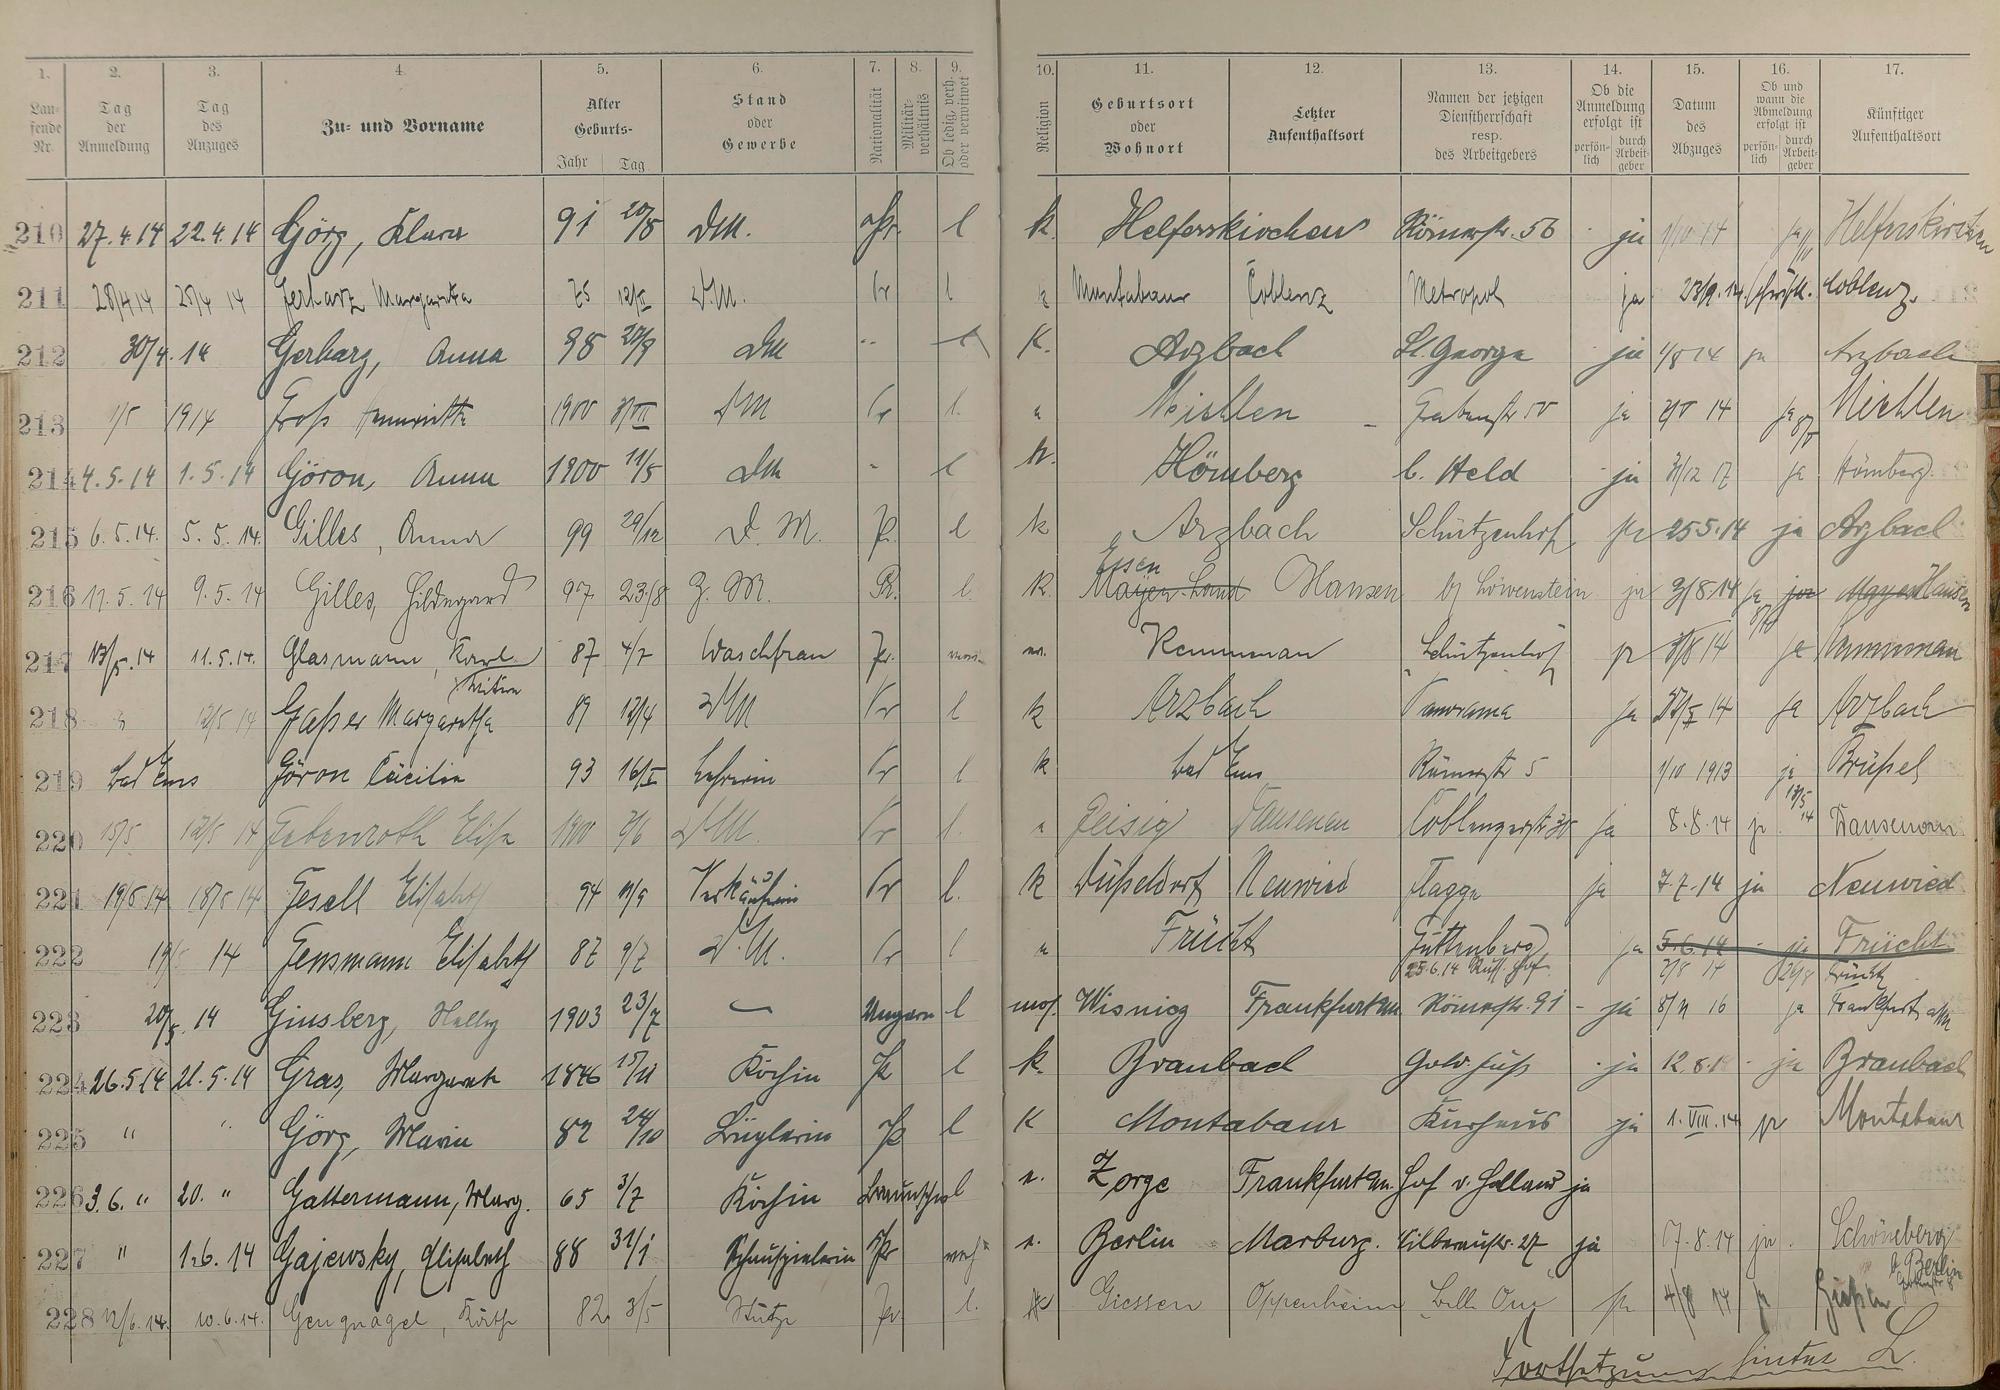 1. 2. 3. 4. 5. 6. 7. 8. 9. 10. 11. 12. 13. 14. 15. 16. 17.
Laufende Nr. Tag der Anmeldung Tag des Anzuges Zu- und Vorname Alter Geburts- Jahr Tag Stand oder Gewerbe Nationalität Militärverhältnis Ob ledig, verh. oder verwitwet Religion Geburtsort oder Wohnort Letzter Aufenthaltsort Namen der jetzigen Dienstherrschaft resp. des Arbeitgebers Ob die Anmeldung erfolgt ist persönlich durch Arbeitgeber Datum des Abzuges Ob und wann die Abmeldung erfolgt ist persönlich durch Arbeitgeber Künftiger Aufenthaltsort
210 27.4.14 22.4.14 Görg, Klara 91 20/8 DM. Pr. l k. Helferskirchen Römerstr. 56 ja 1/10 14 ja Helferskirchen
211 28/4 14 25/4 14 Gerharz Margaretha 75 D.M. Pr l k Montabaur Coblenz Metropol ja 23/9.14 schriftl. Coblenz.
212 30/4. 14 Gerharz, Anna 98 20/9 DM " l K. Arzbach St. George ja 1/8 14 ja Arzbach
213 1/5 1914 Groß Henriette 1900 3/VII DM Pr l. Miehlen Grabenstr. ja 14 ja Miehlen
214 4.5.14 1.5.14 Göron, Anna 1900 11/5 DM " l k. Hömberg b. Held ja 31/12 17 ja Hömberg
215 6.5.14. 5.5.14. Gilles, Anna 99 29/12 D. M. Pr. l k Arzbach Schützenhof ja 25 5.14 ja Arzbach
216 11.5.14 9.5.14 Gilles, Hildegard 97 23./8 Z. M. Pr. l. k. Essen Mayen-Land Hansen bj Löwenstein ja 3/8.14 ja ja Mayen Hausen
217 13/5.14 11.5.14. Glasmann, Karl Witwe 87 4/7 Waschfrau Pr. Kemmenau Schützenhof ja 3/8 14 ja Kemmenau
218 " 12/5 14 Gasser Margaretha 89 12/4 DM Pr l k Arzbach Panorama ja 14 ja Arzbach
219 Bad Ems Göron Cäcilia 93 16/I Lehrerin Pr l k Bad Ems Römerstr 5 1/10 1913 ja 13/5 14 Brüssel
220 15/5 12/5 14 Elise 1900 2/6 DM Pr l. Geisig Dausenau Coblenzerstr 30 ja 8.8.14 ja Dausenau
221 19/5 14 18/5 14 Gesell Elisabeth 94 11/9 Verkäuferin Pr l. k Düsseldorf Neuwied Flagge ja 7.7.14 ja Neuwied
222 19/5 14 Gensmann Elisabeth 87 9/7 D.M. Pr l Frücht Guttenberg ja 5.6.14 - ja Frücht
23.6.14 Russ. Hof 2/8 14 Frücht
223 20/5. 14 Ginsberg, Helly 1903 23/7 Ungarn l mos. Wisnicz Frankfurt a/M Römerstr. 91 - ja 8/11 16 ja Frankfurt a/M
224 26.5.14 21.5.14 Gras, Margarete 1846 15/11 Köchin Pr l k. Braubach Gold. Fuss ja 12.8. ja Braubach
225 " " Görg, Maria 82 24/10 Büglerin Pr l K Montabaur Kurhaus ja 1.VIII.14 ja Montabaur
226 3.6. " 20. " Gattermann, Marg. 65 3/7 Köchin Braunschw l Zorge Frankfurt a/M. Hof v. Holland ja
227 " 1.6.14 Gajewsky, Elisabeth 88 31/1 Schauspielerin Pr verh Berlin Marburg. Silberaustr. 27 ja 7.8.14 ja Schöneberg b. Berlin
228 12/6.14. 10.6.14. Gengnagel, Käthe 82 3/5 Stütze Pr. l. Giessen Oppenheim ja 4/8 14 ja Giessen
Fortsetzung hinter L.